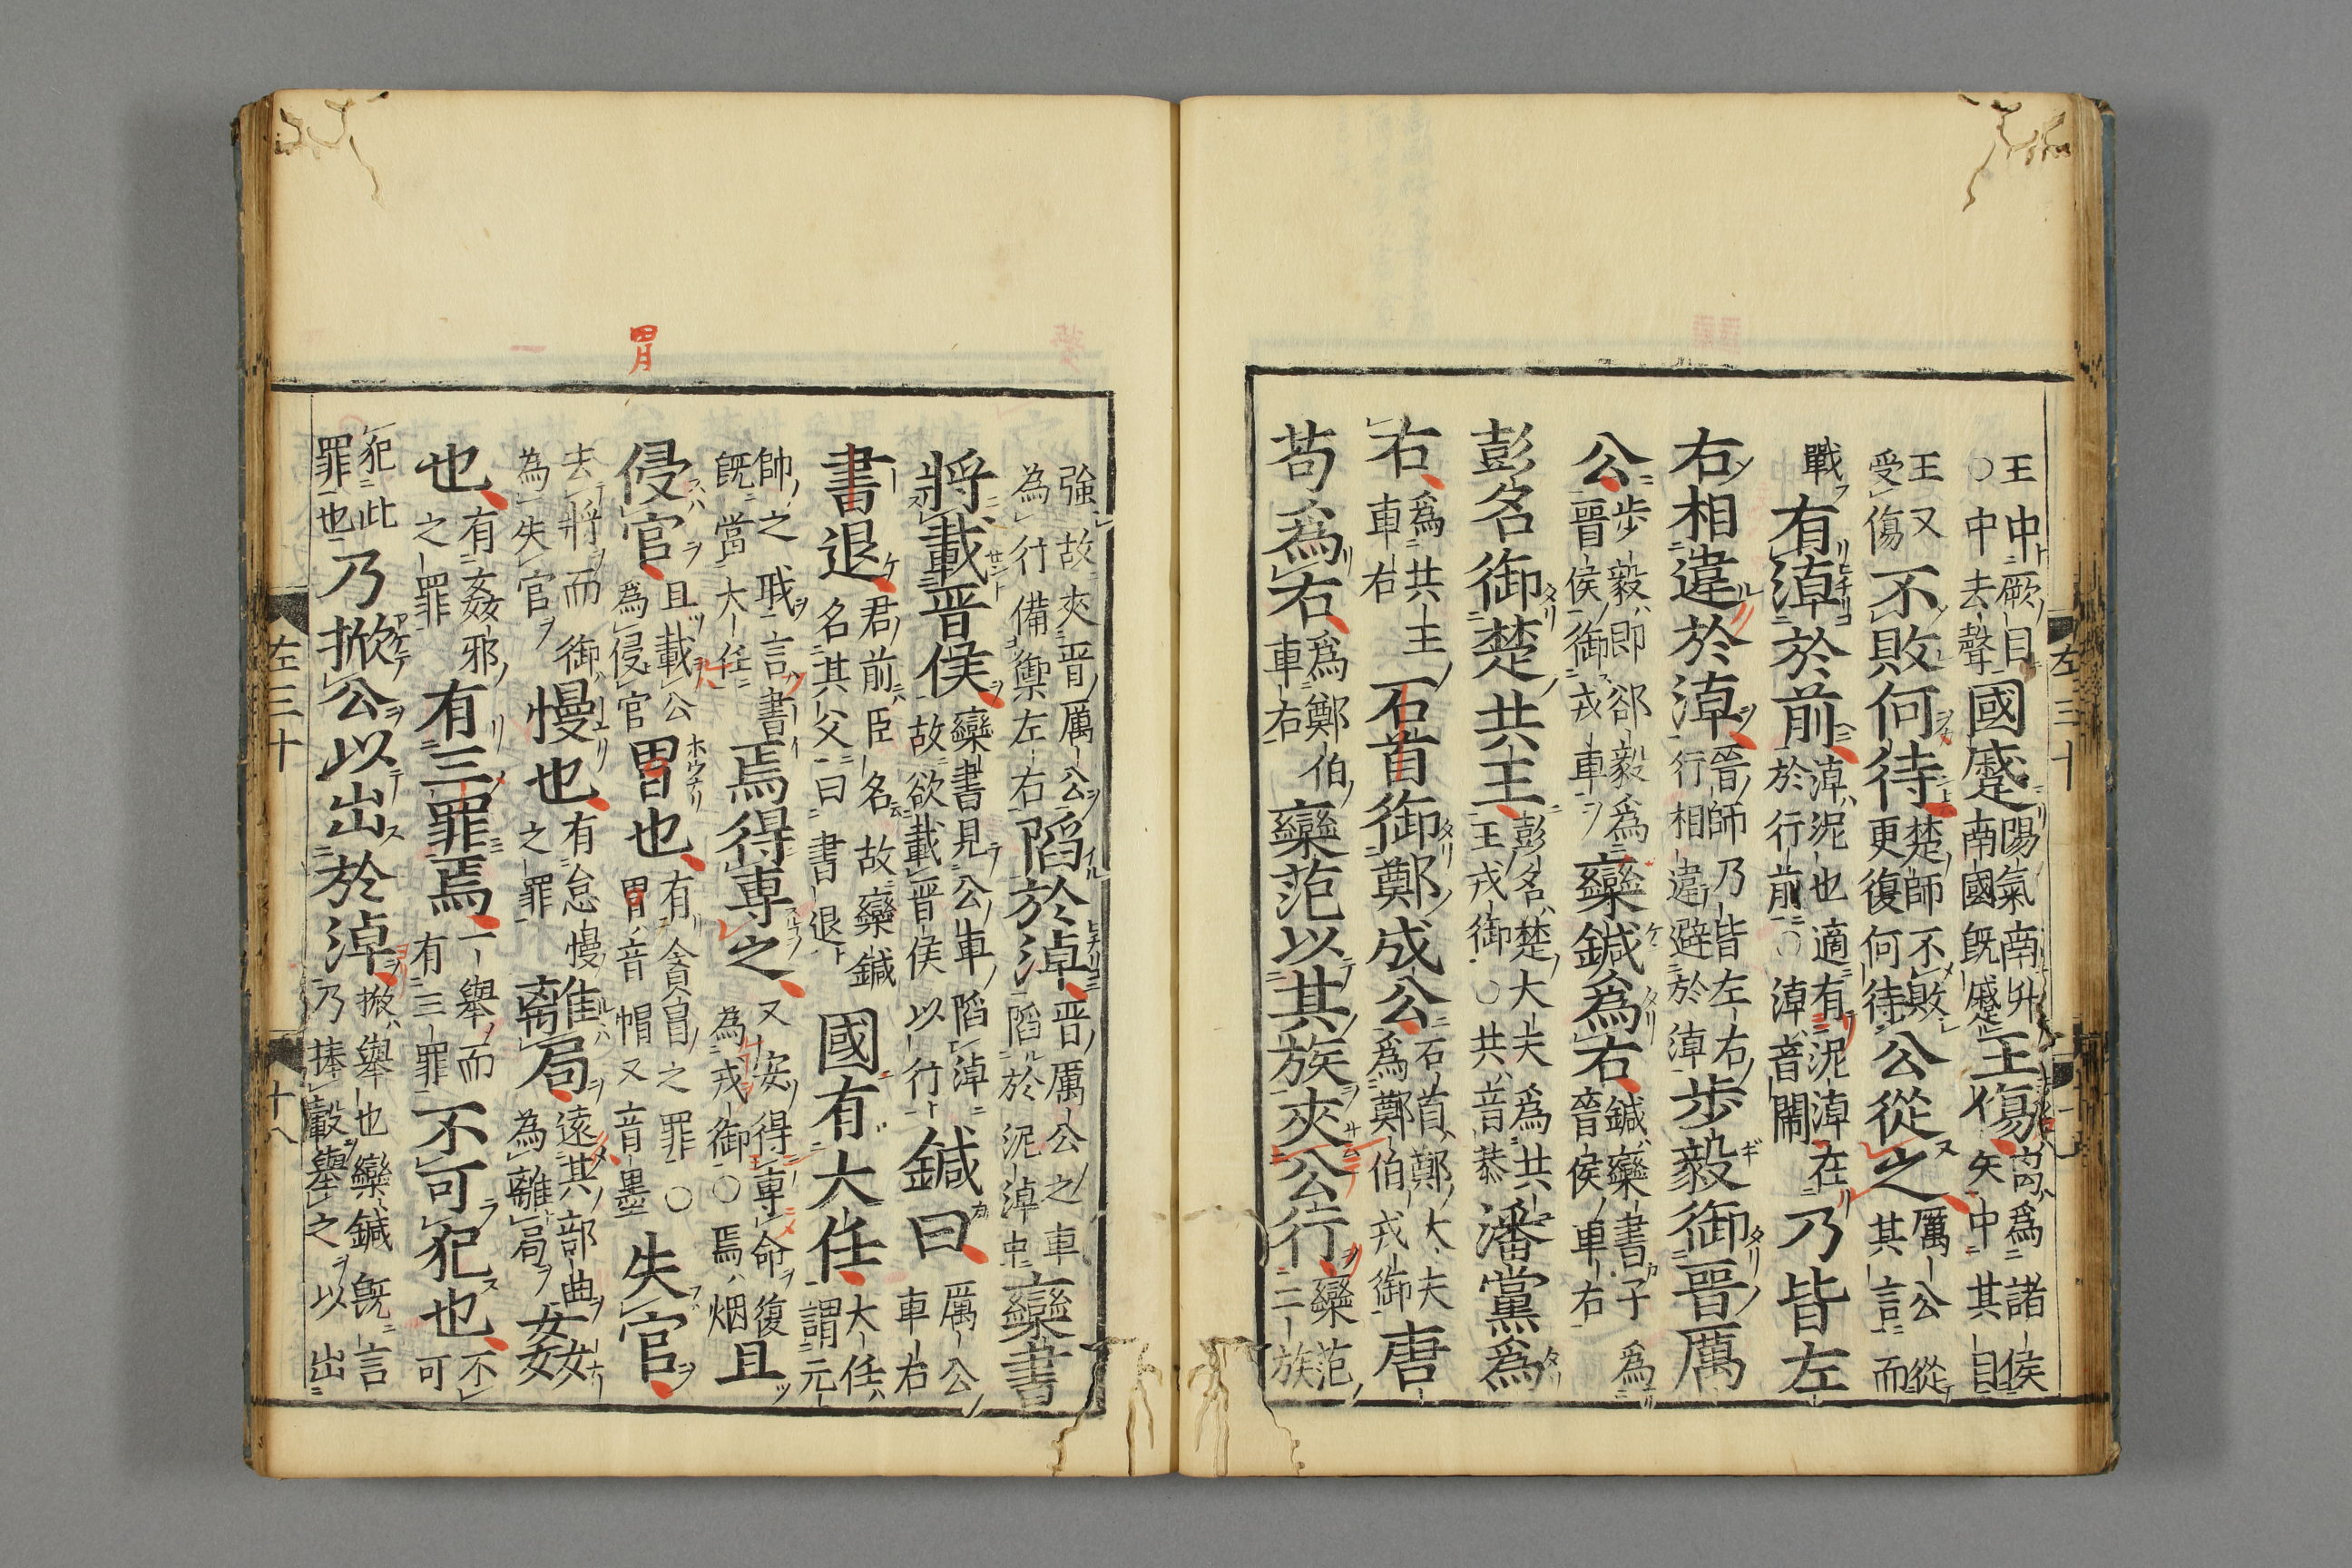 王中厥目○中去聲國蹙陽氣南升南國既蹙王傷离爲諸侯矢中其目
王又受傷不敗何待楚師不敗更復何待公從之厲公從其言而
戰有淖於前淖泥也適有泥淖在於行前○淖音鬧乃皆左
右相違於淖晉師乃皆左右行相違避於淖步毅御晉厲
公步毅即郤毅爲晉侯御戎車欒鍼爲右鍼欒書子爲晉侯車右
彭名御楚共王彭名楚大夫爲共王戎御○共音恭潘黨爲
右爲共主車右石首御鄭成公石首鄭大夫爲鄭伯戎御唐
苟爲右爲鄭伯車右欒范以其族夾公行欒范二族
左三十
冒
強故夾晉厲公為行備禦左右陷於淖晉厲公之車陷於泥淖中欒書
將載晉侯欒書見公車陷淖故欲載晉侯以行鍼曰厲公車右
書退君前臣名故欒鍼名其父曰書退國有大任大任謂元
帥之職言書既當大任焉得專之又安得專命復為戎御○焉烟且
侵官且載公爲侵官冒也有貪冒之罪○冒音帽又音墨失官
去將而御為失官慢也有怠慢之罪離局遠其部曲為離局姦
也有姦邪之罪有三罪焉一舉而有三罪不可犯也不可
犯此罪也乃掀公以出於淖掀舉也欒鍼既言乃捧轂舉之以出
左三十 十八